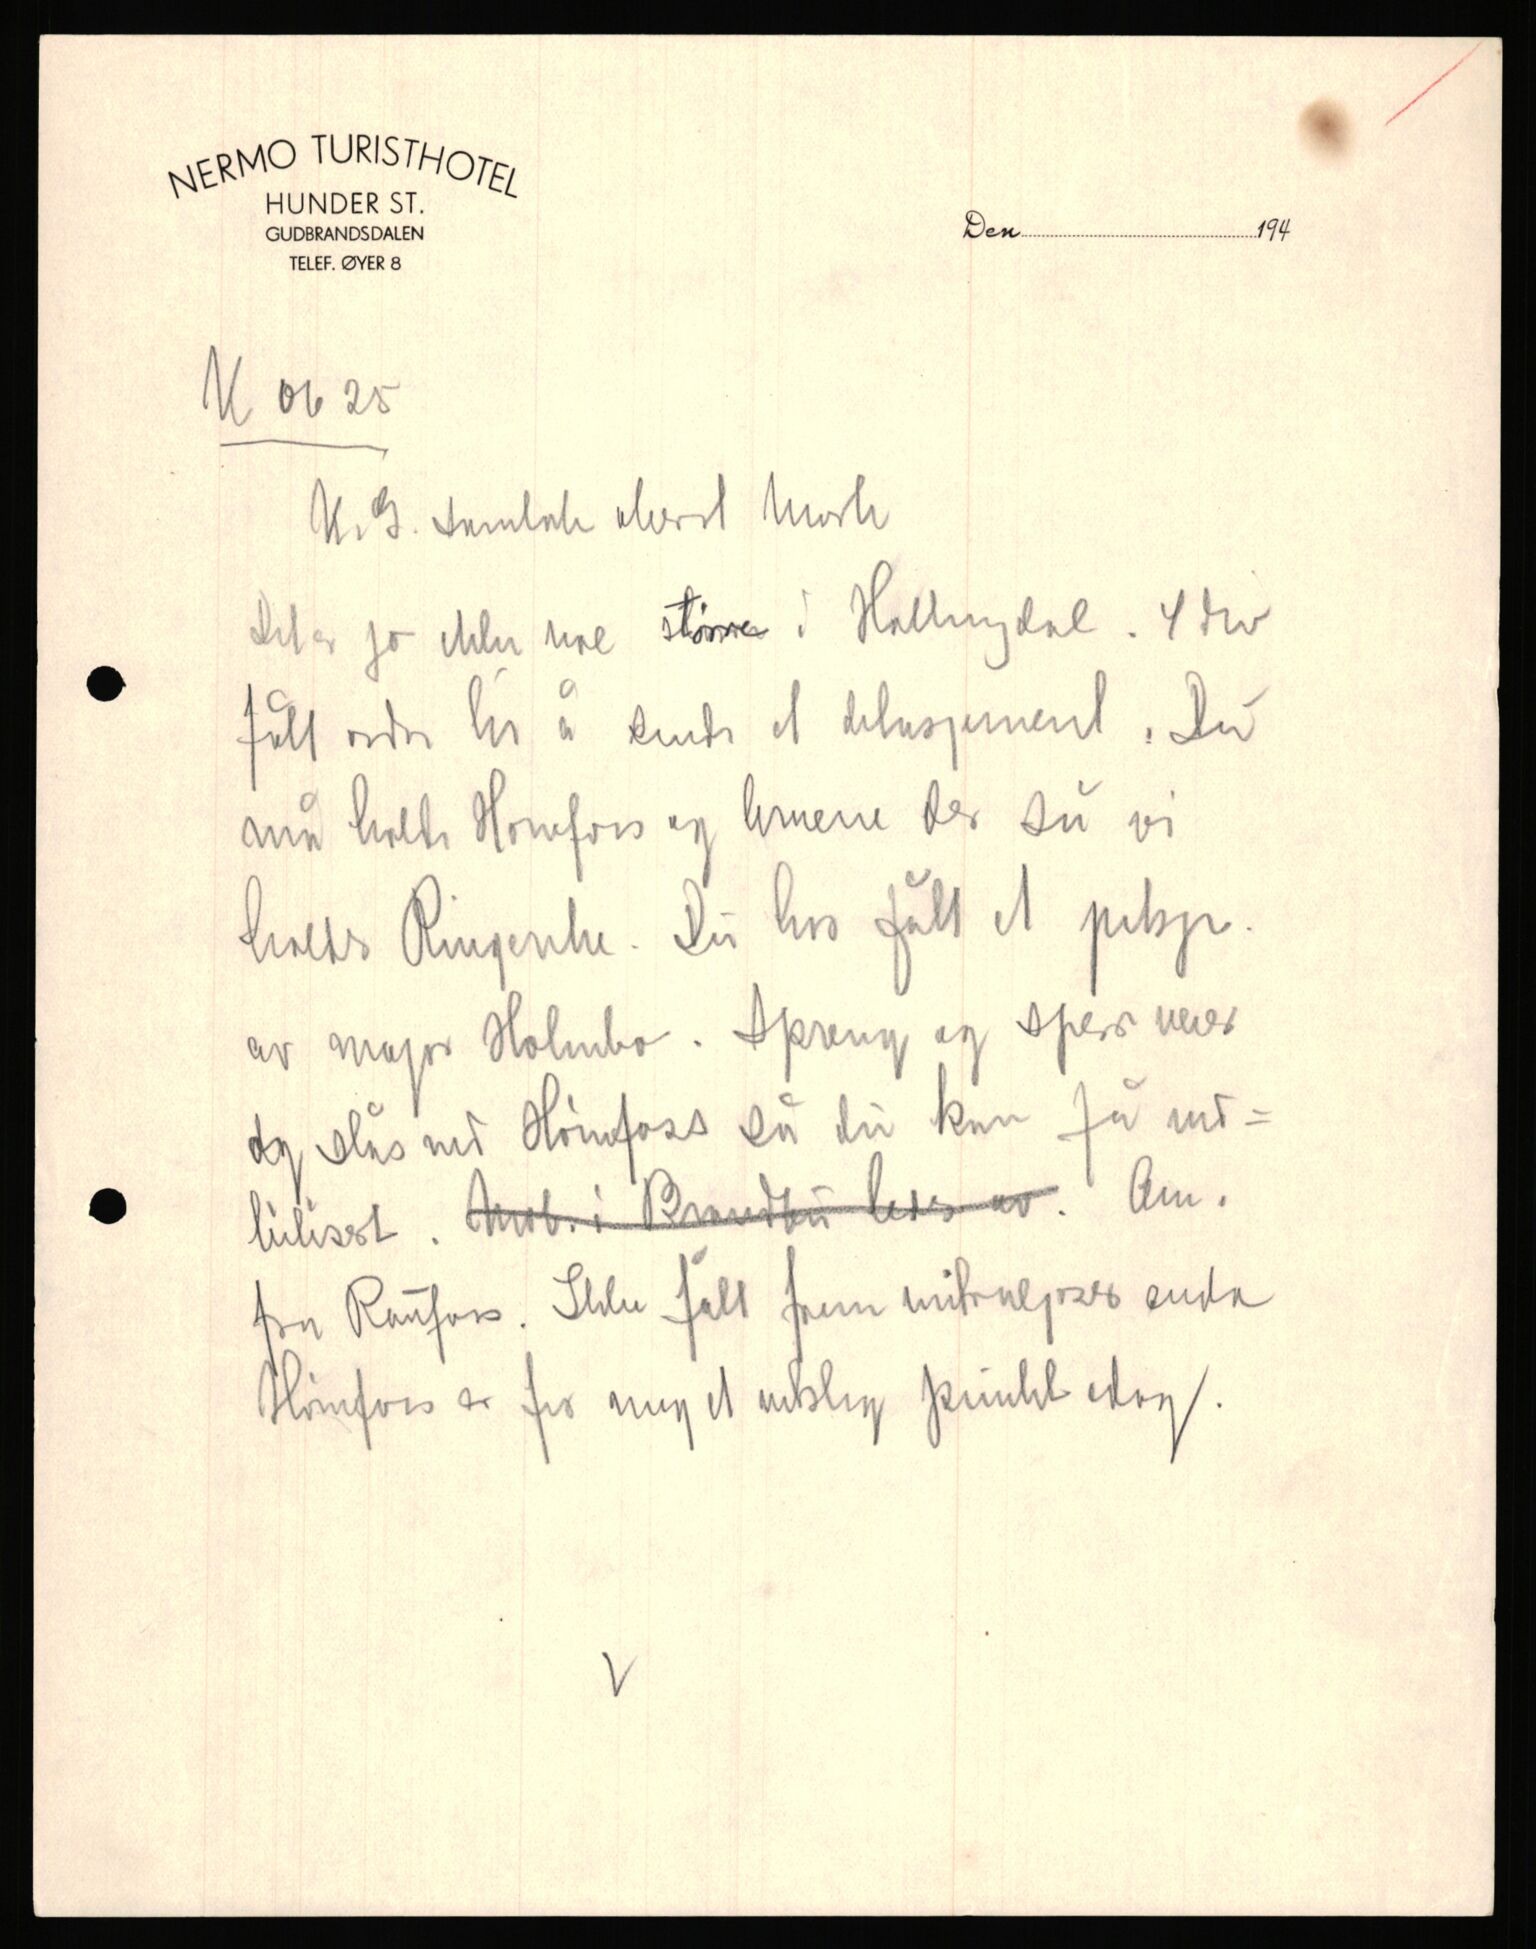 NERMO TURISTHOTEL
HUNDER ST.
GUDBRANDSDALEN
TELEF. ØYER 8
Den 194
Kl 06 25
K.G. samtale oberst Mork
Det er jo ikke noe større i Hallingdal. 4 div
fått ordre til å sende et detasjement. Du
må holde Hønefoss og bruene der så vi
holder Ringerike. Du har fått et
av major Holmbo. Spreng og sperr veier
og slås ved Hønefoss så du kan få mo=
bilisert. Mob. i Brandbu ledes av. Am.
fra Raufoss. Ikke fått frem mitraljøser enda
Hønefoss er for meg et viktig punkt idag/.
V